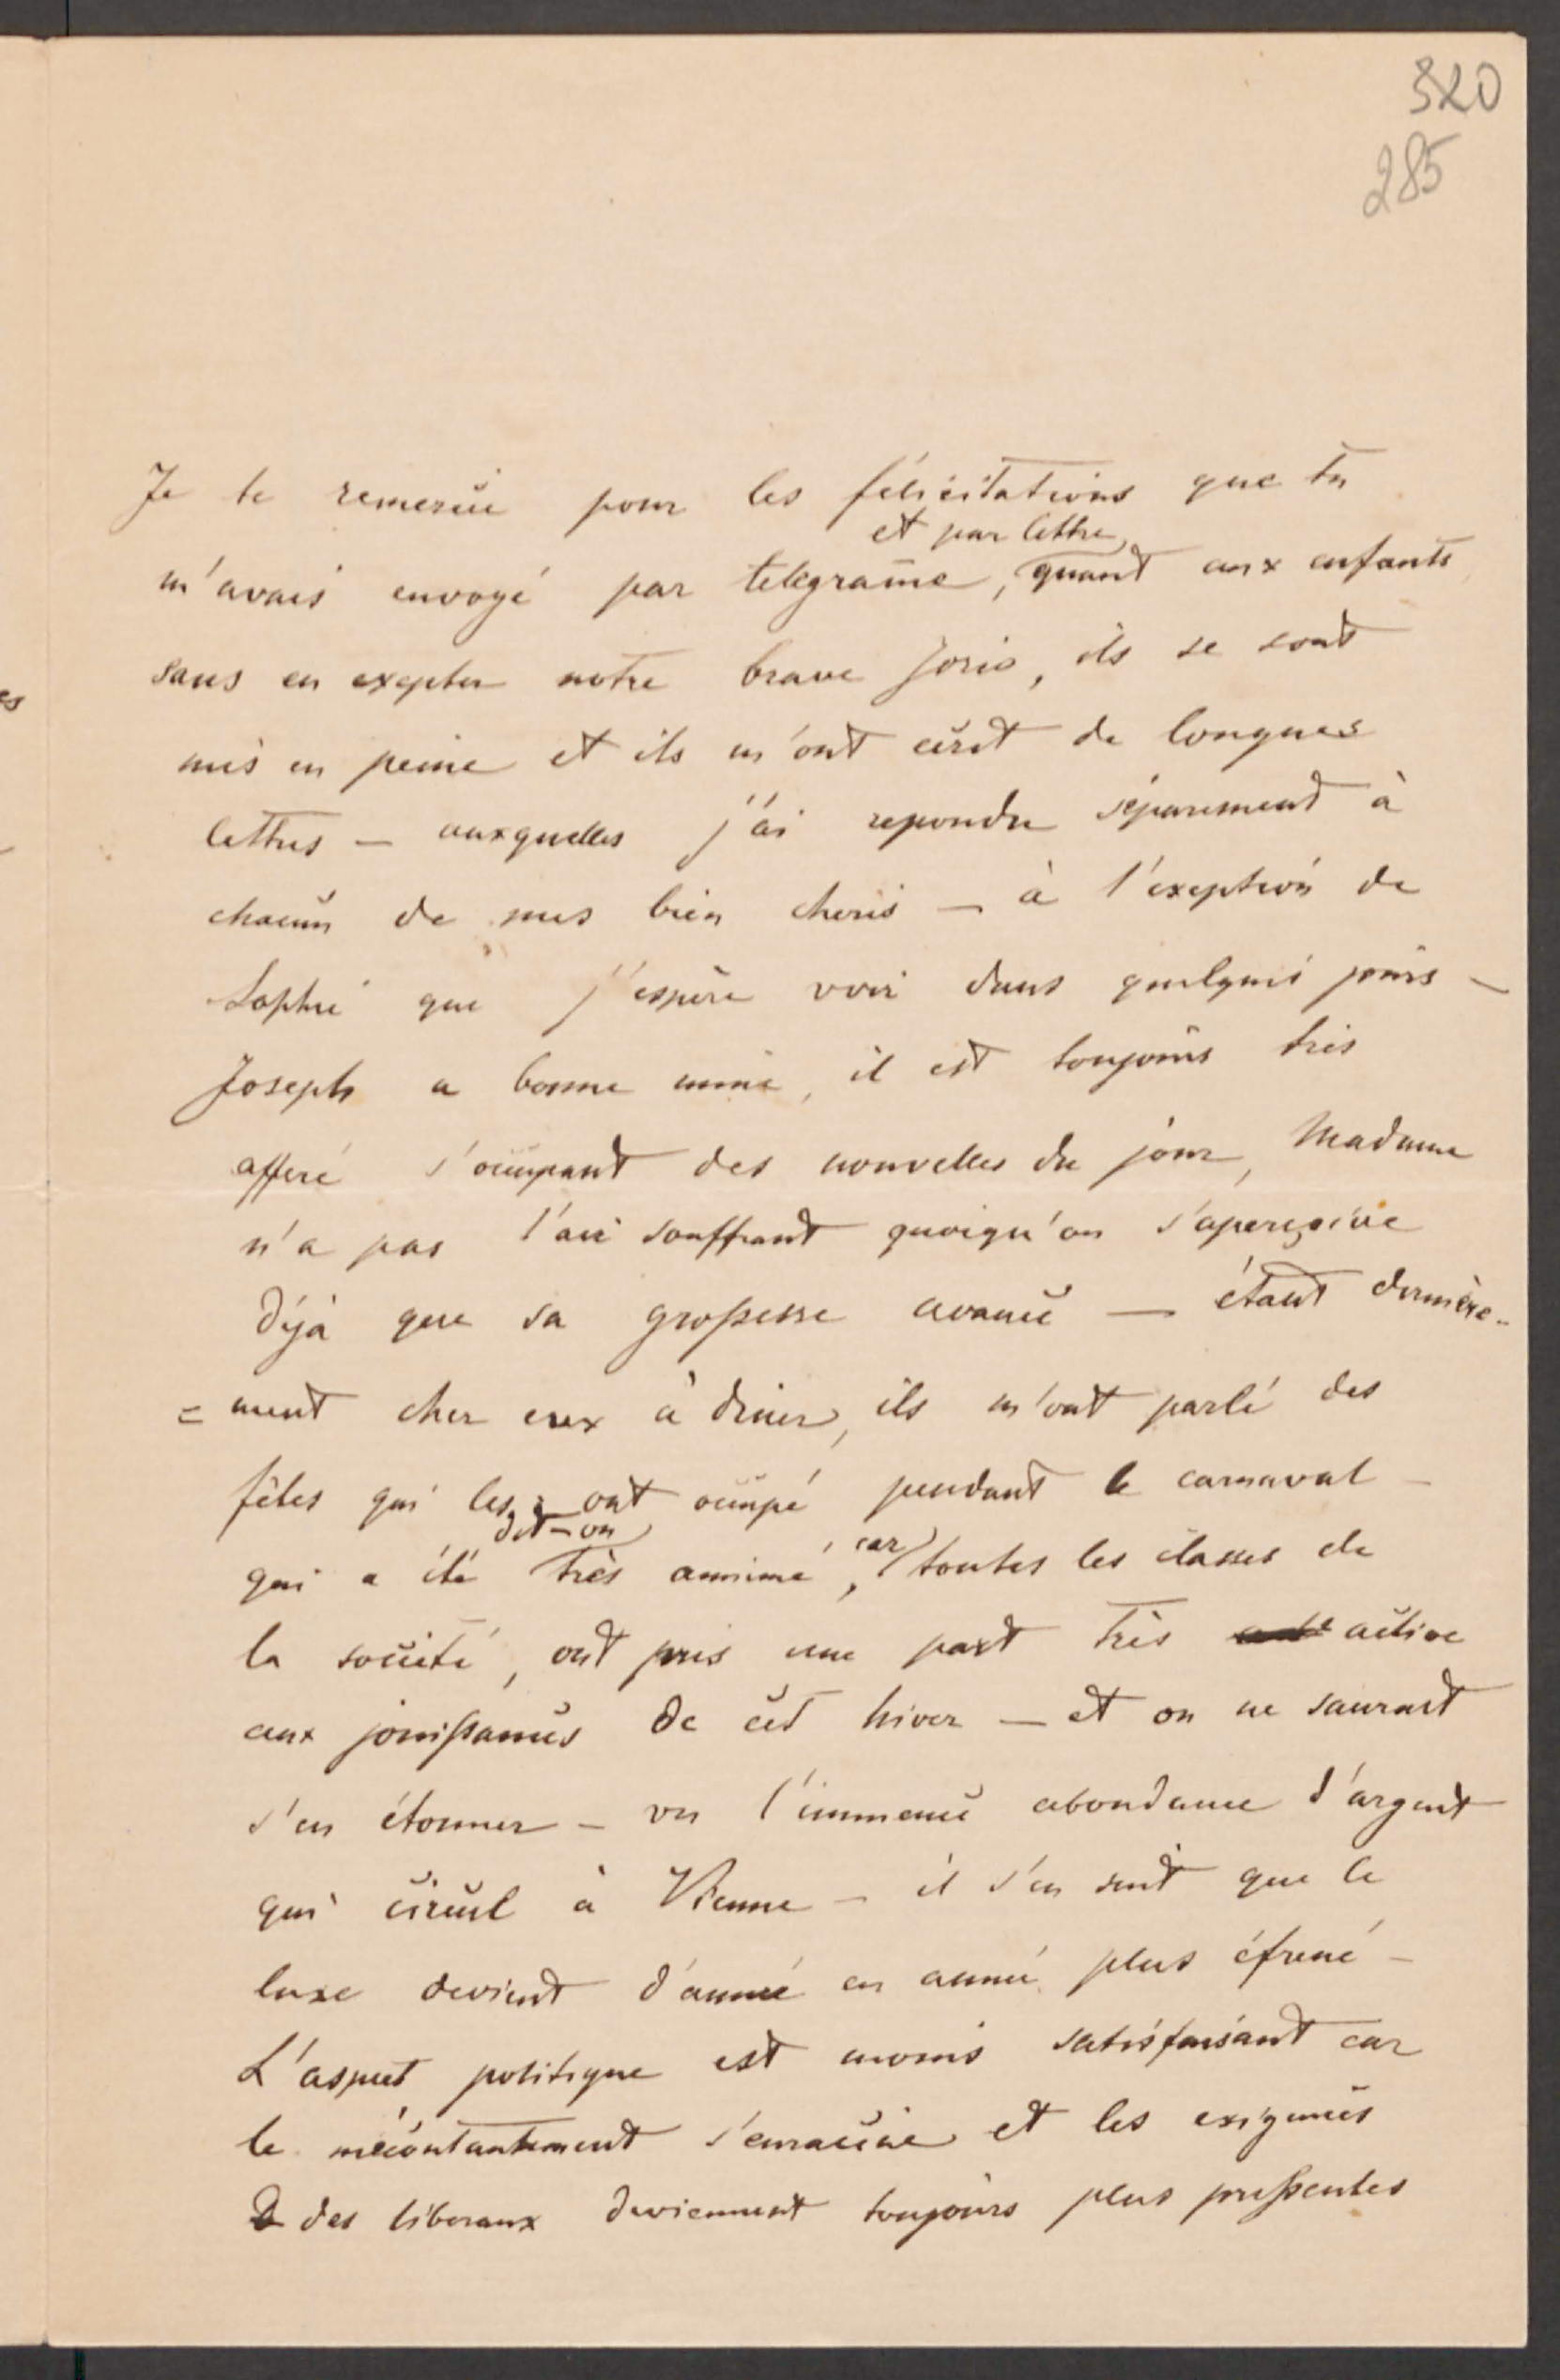 320
285
Je te remercie pour les félicitations que tu
et par lettre
m'avais envoyé par telegrame, quant aux enfants
sans en exepter notre brave Joris, ils se sont
mis en peine et ils m'ont écrit de longues
lettres — auxquelles j'ai repondu séparement à
chacun de mes bien cheris — à l'exeption de
Sophie que j'espère voir dans quelques jours —
Joseph a bonne mine, il est toujours très
afferé s'occupant des nouvelles du jour, Madame
n'a pas l'air souffrant quoiqu'on s'aperçoive
déjà que sa großesse avance — étant dernière-
= ment cher eux à diner, ils m'ont parlé des
fêtes qui les ont occupé pendant le carnaval —
dit-on car
qui a été très annimé, toutes les classes de
la société, ont pris une part très active
aux jouißances de cet hiver — et on ne saurait
s'en étonner — vu l'immence abondance d'argent
qui circul à Vienne — il s'en suit que le
luxe devient d'année en année plus éfrené —
L'aspect politique est moins satisfaisant car
le mécontantement s'enracine et les exigences
des liberaux deviennent toujours plus preßentes